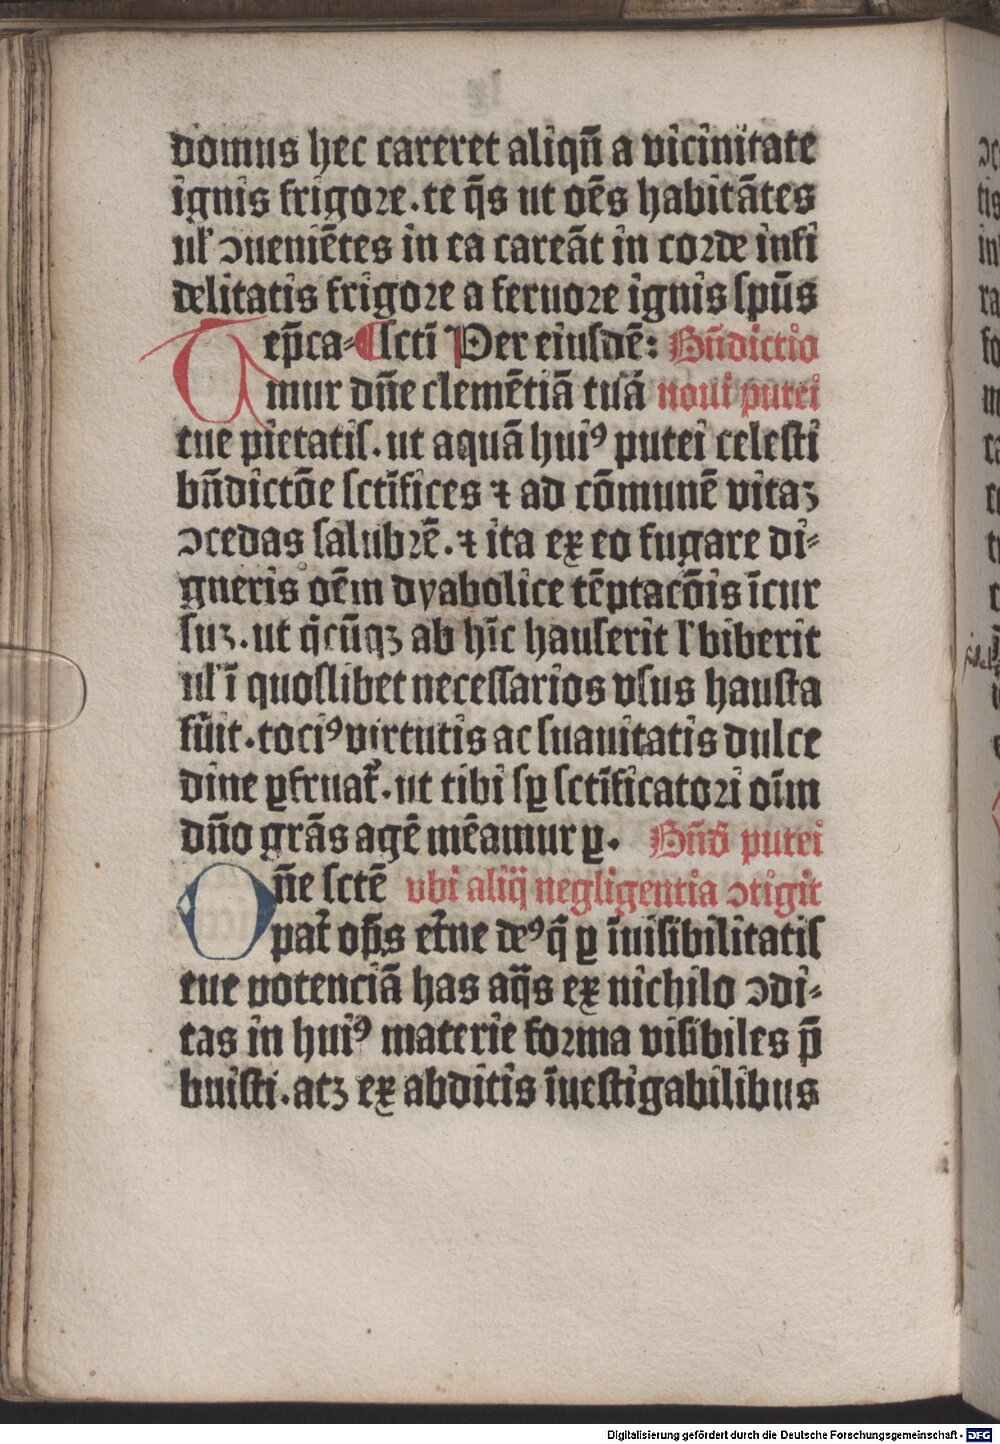 domus hec careret aliqn̄ a vicinitate
ignis frigore. te q̄s ut oēs habitātes
ul' ꝯueniētes in ea careāt in corde infi
delitatis frigore a feruore ignis spūs
Tep̄ca⸗ ¶ scti Per eiusdē: Bn̄dictio
mur dn̄e clemētiā tuā noui putei
tue pietatis. ut aquā huiꝰ putei celesti
bn̄dictōe sctīfices ⁊ ad cōmunē vitaꝫ
ꝯcedas salubrē. ⁊ ita ex eo fugare di⸗
gneris oēm dyabolice tēptacōis īcur
suꝫ. ut q̄cūqꝫ ab hīc hauserit l' biberit
ul' ī quoslibet necessarios vsus hausta
fūit. tociꝰ virtutis ac suauitatis dulce
dine ꝑfruat̄. ut tibi sꝑ sctīficatori oīm
dn̄o grās agē mēamur ꝑ. Bn̄d putei
One sctē vbi aliq̄ negligentia ꝯtigit
pat̄ op̄s et̄ne deꝰ q̄ ꝑ īuisibilitatis
tue potenciā has aq̄s ex nichilo ꝯdi⸗
tas in huiꝰ materie forma visibiles p̄
buisti. atꝫ ex abditis īuestigabilibus
Digitalisierung gefördert durch die Deutsche Forschungsgemeinschaft - DFG